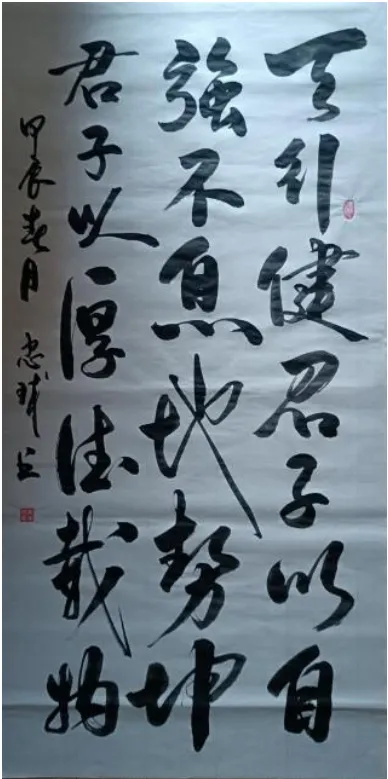 天行健君子以自
強不息地势坤
君子以厚德载物
甲辰春月 忠琫书